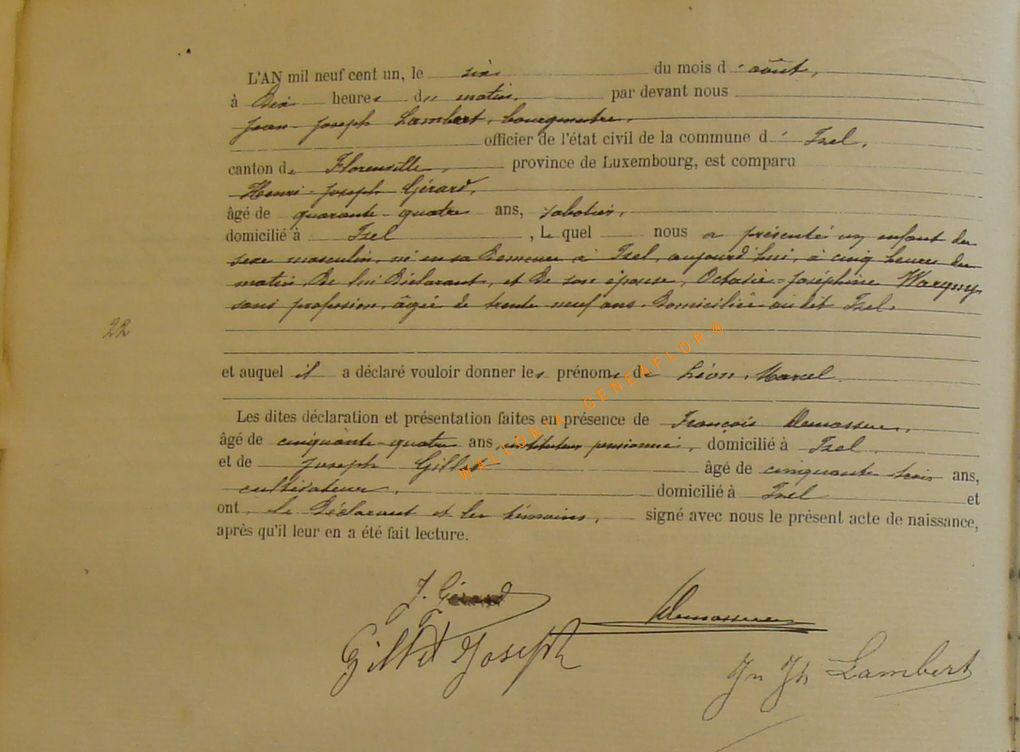 L'AN mil neuf cent un, le six du mois d' août,
à Dix heures du matin, par devant nous
Jean-Joseph Lambert, bourgmestre,
officier de l'état civil de la commune d' Izel,
canton de Florenville, province de Luxembourg, est comparu
Henri-Joseph Gérard,
âgé de quarante-quatre ans, sabotier,
domicilié à Izel, Le quel nous a présenté un enfant du
sexe masculin, né en sa demeure à Izel, aujourd'hui, à cinq heures du
matin, De lui Déclarant, et de son épouse, Octavie-Joséphine Wargny,
sans profession, âgée de trente neuf ans, Domiciliée au dit Izel.
22
et auquel il a déclaré vouloir donner les prénoms de Léon, Marcel.
Les dites déclaration et présentation faites en présence de François
âgé de cinquante-quatre ans, instituteur pensionné, domicilié à Izel,
et de Joseph âgé de cinquante trois ans,
cultivateur, domicilié à Izel et
ont, le Déclarant et les témoins, signé avec nous le présent acte de naissance,
après qu'il leur en a été fait lecture.
J. Gérard
Joseph
Jn Jh Lambert
WALLONIA GENEAFLOR®